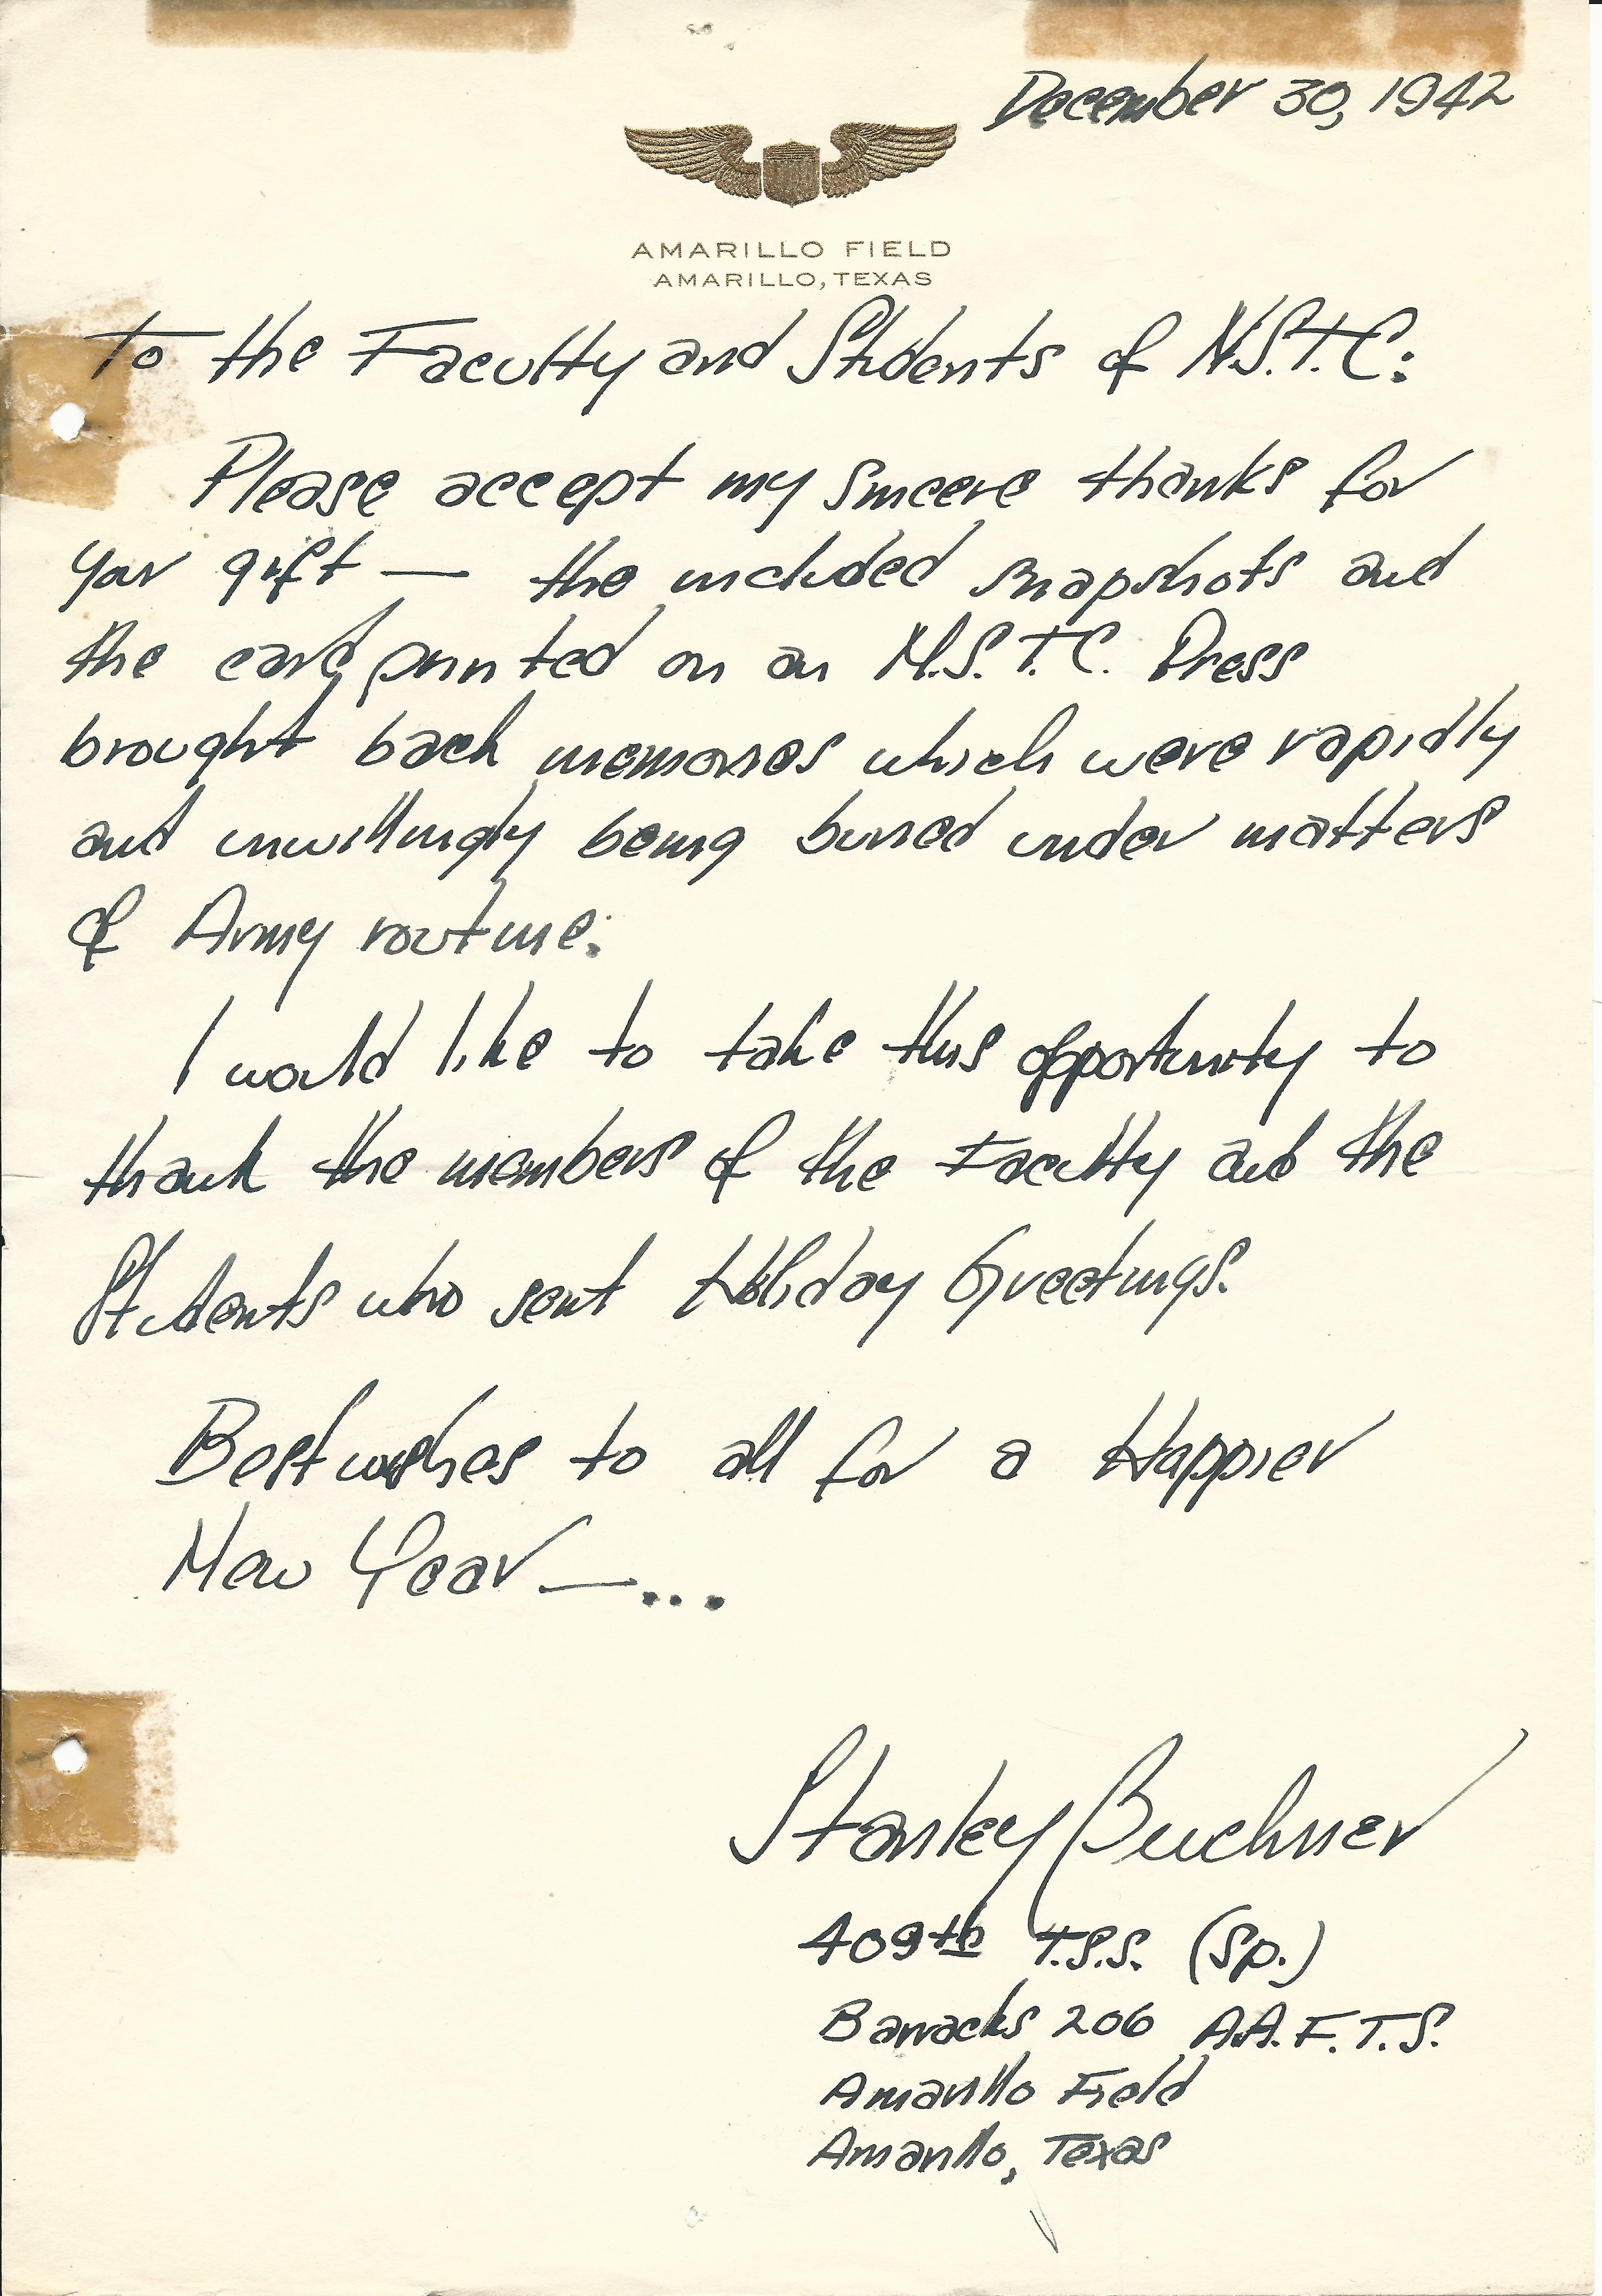 December 30, 1942
AMARILLO FIELD
AMARILLO, TEXAS
To the Faculty and Students of N.S.T.C:
Please accept my sincere thanks for
your gift — the included snapshots and
the card printed on an N.S.T.C. Press
brought back memories which were rapidly
and unwillingly being buried under matters
of Army routine.
I would like to take this opportunity to
thank the members of the Faculty and the
Students who sent Holiday Greetings.
Best wishes to all for a Happier
New Year — ...
Stanley Buchner
409th T.S.S. (Sp.)
Barracks 206 A.A.F.T.S.
Amarillo Field
Amarillo, Texas